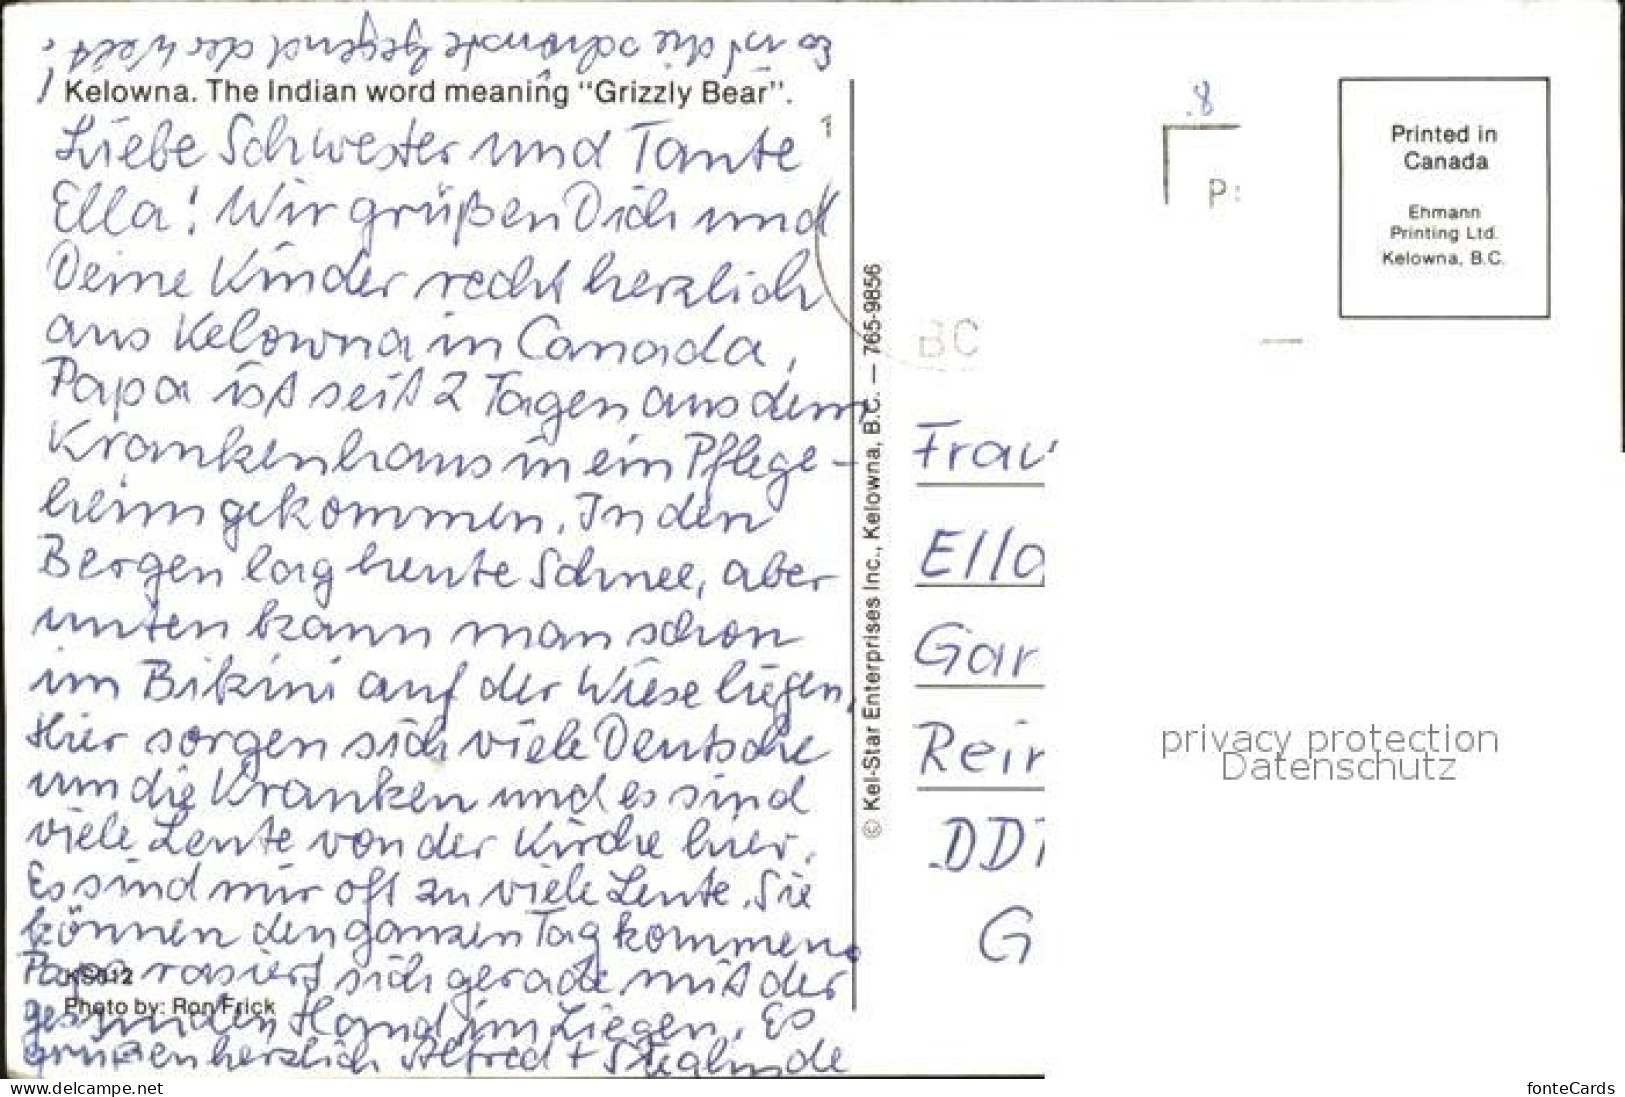 Es ist die schönste Gegend der Welt!
Kelowna. The Indian word meaning "Grizzly Bear".
Liebe Schwester und Tante
Ella! Wir grüßen Dich und
Deine Kinder recht herzlich
aus Kelowna in Canada,
Papa ist seit 2 Tagen aus dem
Krankenhaus in ein Pflege-
heim gekommen. In den
Bergen lag heute Schnee, aber
unten kann man schon
im Bikini auf der Wiese liegen.
Hier sorgen sich viele Deutsche
um die Kranken und es sind
viele Leute von der Kirche hier.
Es sind mir oft zu viele Leute. Sie
können den ganzen Tag kommen.
Papa rasiert sich gerade mit der
KS012
gesunden Hand im Liegen. Es
Photo by: Ron Frick
grüßen herzlich Alfred + Sieglinde
© Kel-Star Enterprises Inc., Kelowna, B.C. — 765-9856
8
P:
BC
Printed in
Canada
Ehmann
Printing Ltd.
Kelowna, B.C.
Frau
Ella
Gar
Rein
DD
G
privacy protection
Datenschutz
www.delcampe.net
fonteCards